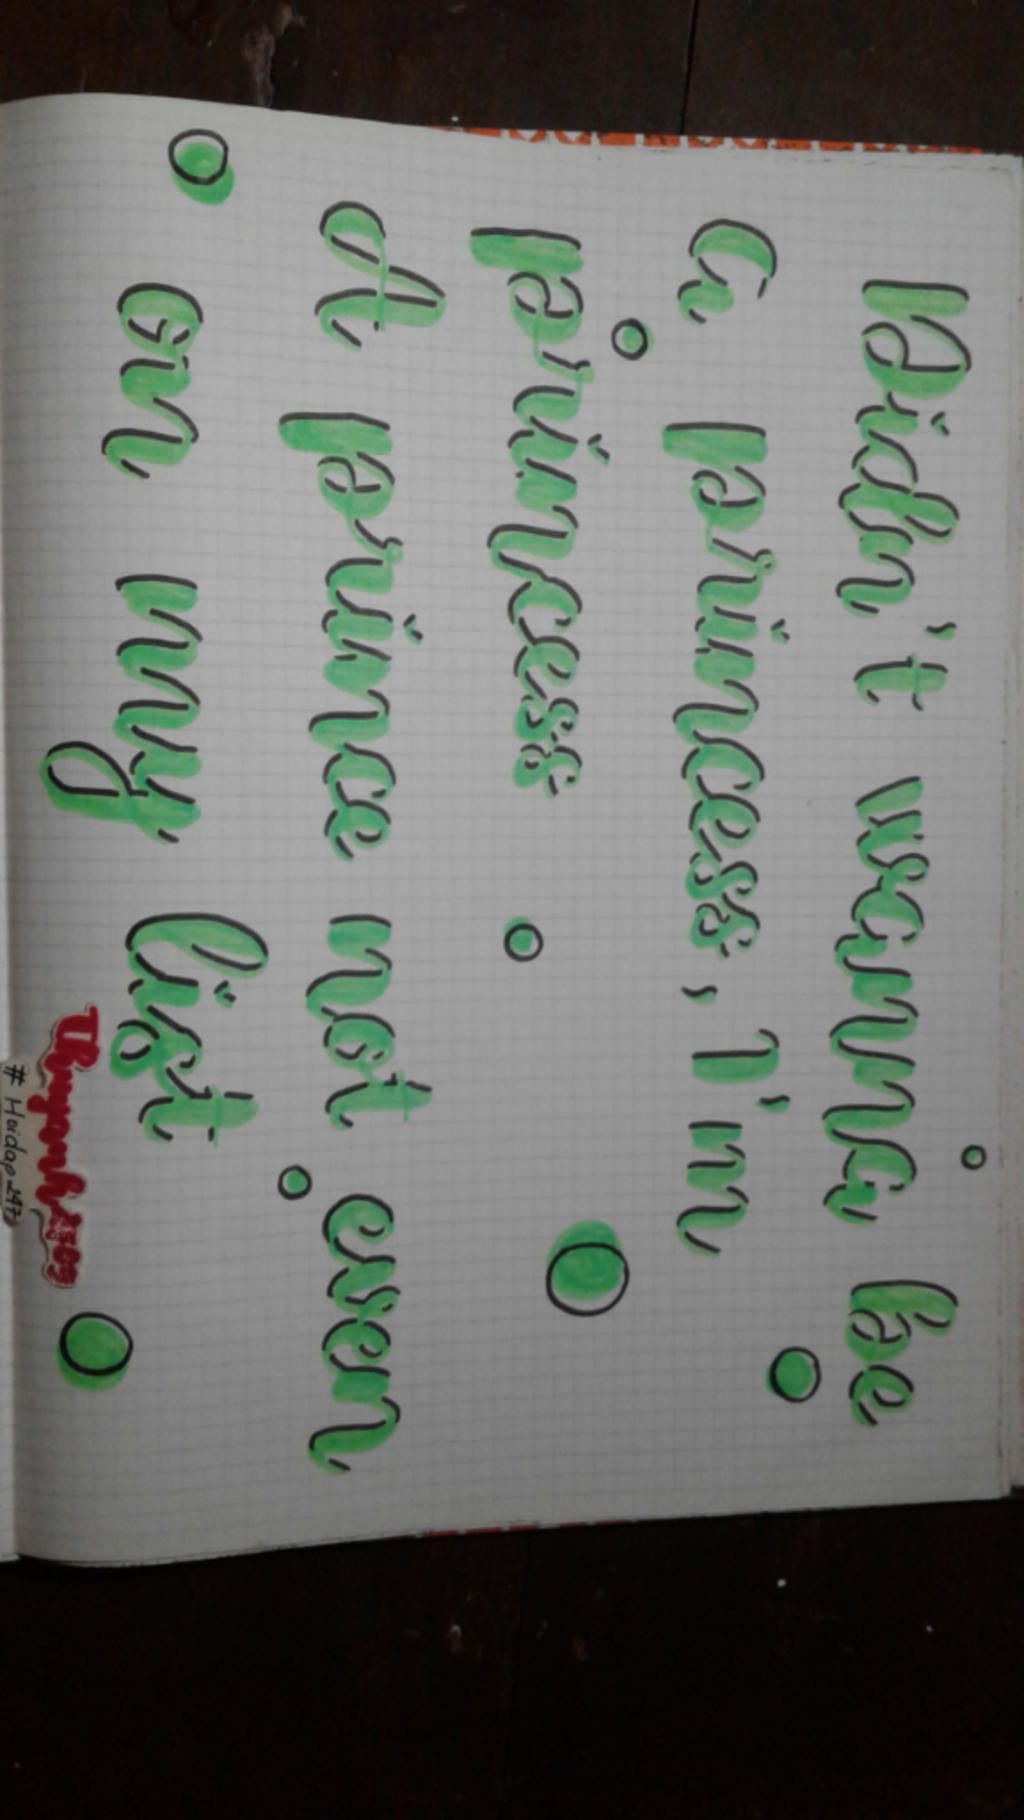 Didn't wanna be
a princess, I'm
princess
A prince not even
on my list